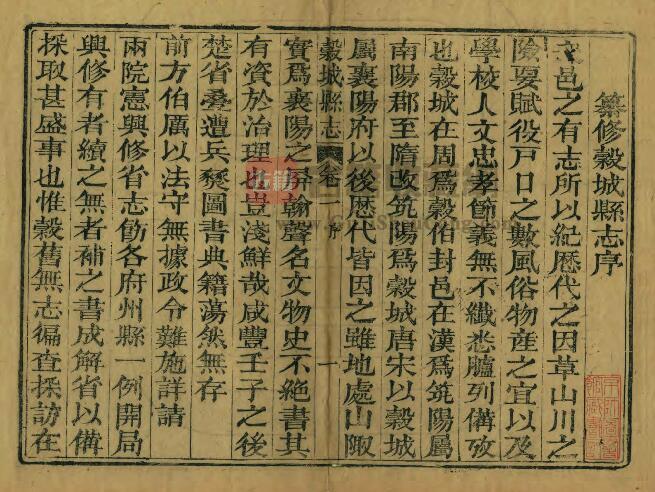 纂修穀城縣志序
邑之有志所以紀歷代之因革山川之
險要賦役戶口之數風俗物產之宜以及
學校人文忠孝節義無不纖悉臚列備攷
也穀城在周爲穀伯封邑在漢爲筑陽屬
南陽郡至隋改筑陽爲穀城唐宋以穀城
屬襄陽府以後歷代皆因之雖地處山陬
穀城縣志 卷一 序 一
實爲襄陽之屏翰聲名文物史不絶書其
有資於治理也豈淺鮮哉咸豐壬子之後
楚省疊遭兵燹圖書典籍蕩然無存
前方伯厲以法守無據政令難施詳請
兩院憲興修省志飭各府州縣一例開局
興修有者續之無者補之書成解省以備
採取甚盛事也惟穀舊無志徧查採訪在